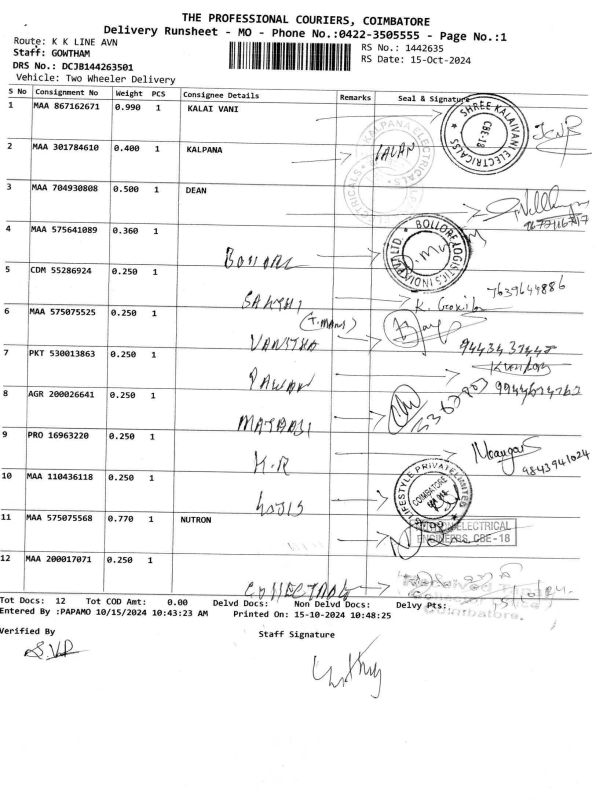 THE PROFESSIONAL COURIERS, COIMBATORE
Delivery Runsheet - MO - Phone No.:0422-3505555 - Page No.:1
Route: K K LINE AVN
RS No.: 1442635
Staff: GOWTHAM
RS Date: 15-Oct-2024
DRS No.: DCJB144263501
Vehicle: Two Wheeler Delivery
S No Consignment No Weight PCS Consignee Details Remarks Seal & Signature
1 MAA 867162671 0.990 1 KALAI VANI
SHREE KALAIVANI ELECTRICALSS CBE-18
2 MAA 301784610 0.400 1 KALPANA
KALPANA ELECTRICALS
3 MAA 704930808 0.500 1 DEAN
4 MAA 575641089 0.360 1
BOLLORE LOGISTICS INDIA PVT LTD
5 CDM 55286924 0.250 1
7639644886
SAKTHI K. Gokila
6 MAA 575075525 0.250 1
(T.MANI)
VANITHA
7 PKT 530013863 0.250 1
PAWAN
8 AGR 200026641 0.250 1
9 PRO 16963220 0.250 1
9843941024
K.R
10 MAA 110436118 0.250 1
LIFESTYLE PRIVATE LIMITED COIMBATORE
11 MAA 575075568 0.770 1 NUTRON
ELECTRICAL
ENGINEERS, CBE-18
12 MAA 200017071 0.250 1
15/10/24
Coimbatore.
Tot Docs: 12 Tot COD Amt: 0.00 Delvd Docs: Non Delvd Docs: Delvy Pts:
Entered By :PAPAMO 10/15/2024 10:43:23 AM Printed On: 15-10-2024 10:48:25
Verified By
Staff Signature
S.V.P